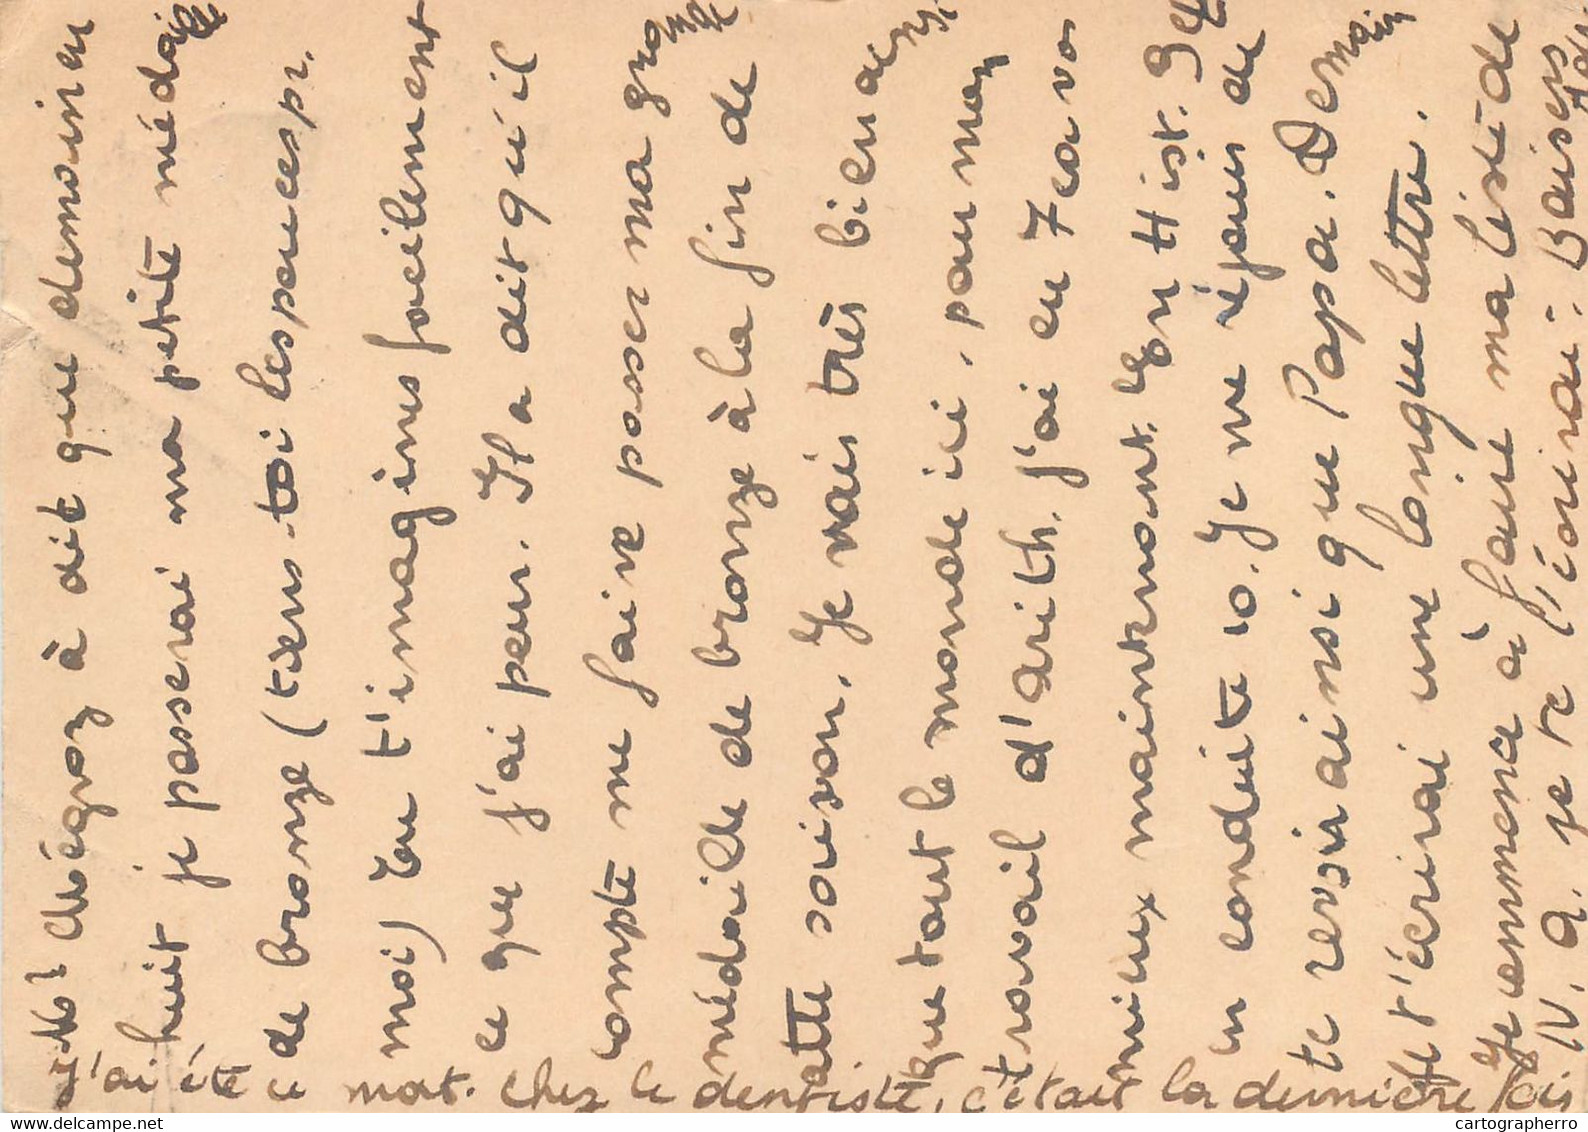 Mol Chégroz à dit que demoin en
huit je passerai ma petite médail
de bronze (tiens-toi les pouces pr.
moi) Tu t'imagines facilement
ce que j'ai peur. Il a dit qu'il
compte me faire passer ma gro
médaille de bronze à la fin de
cette saison. Je vais très bien ainsi
que tout le monde ici, pour mon
travail d'arith. j'ai eu 7 ça va
mieux maintenant. En Hist. 9 et
en conduite 10. Je me réjouis de
te revoir ainsi que Papa. Demain
je t'écrirai une longue lettre.
Je commence à faire ma liste de
N. A. je te l'écrirai. Baisers
j'ai été ce mat. chez le dentiste, c'était la dernière fois
delcampe.net
cartographerro